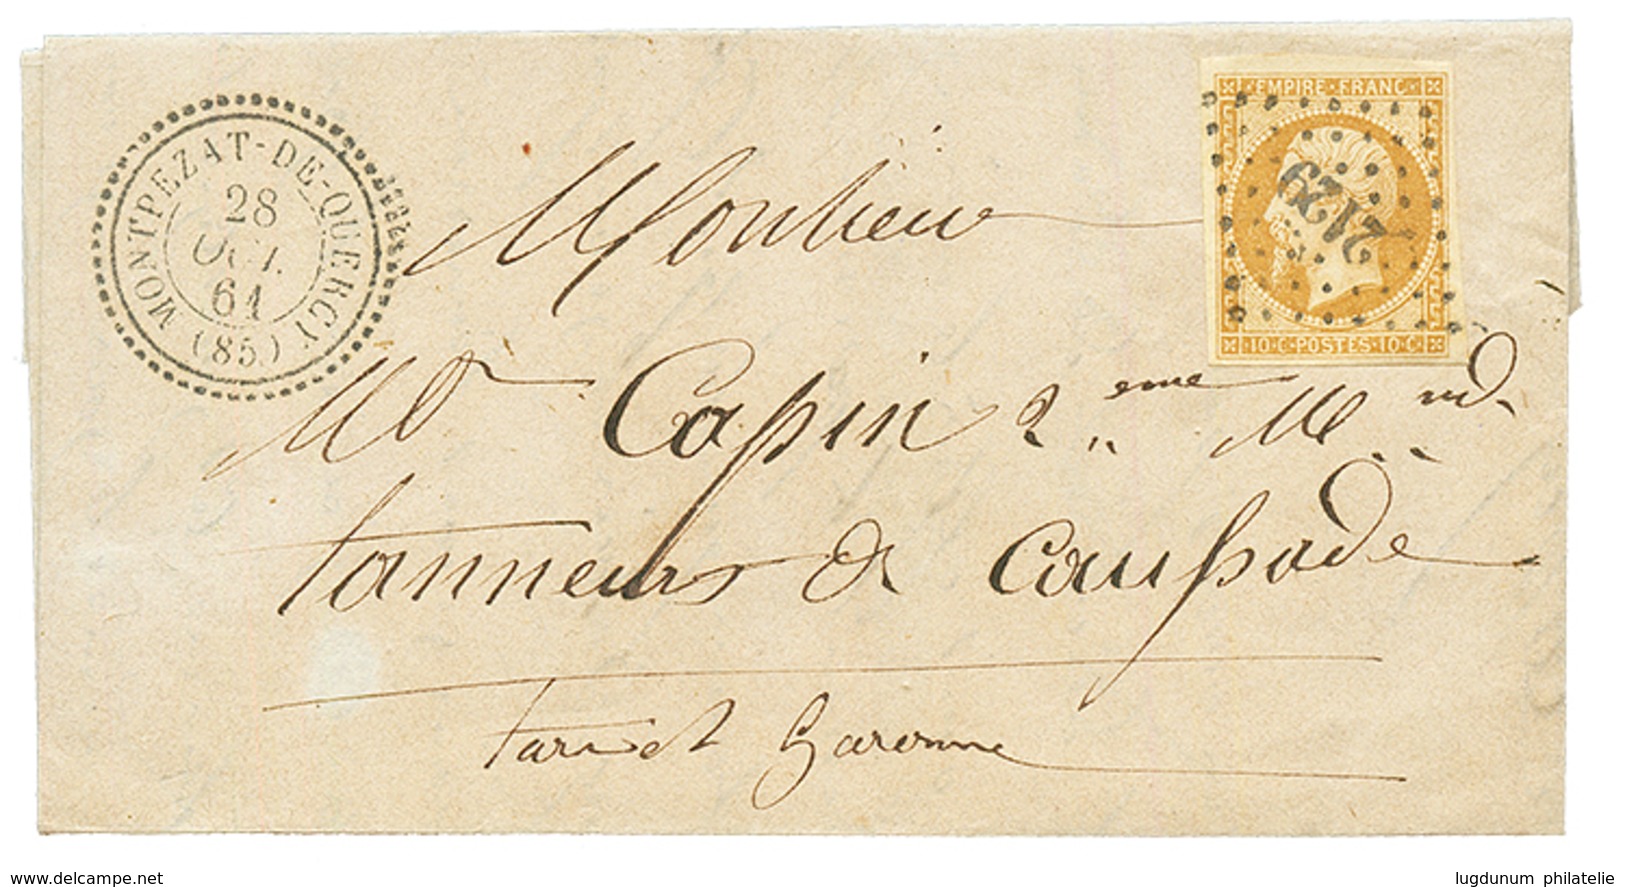 MONTPEZAT-DE-QUERCY (85)
28
OCT.
61
EMPIRE·FRANC·
2129
10·C·POSTES·10·C·
Monsieur
Mr Capin 2eme Md
tanneurs à Caussade
Tarn et Garonne
delcampe.net
lugdunum philatelie